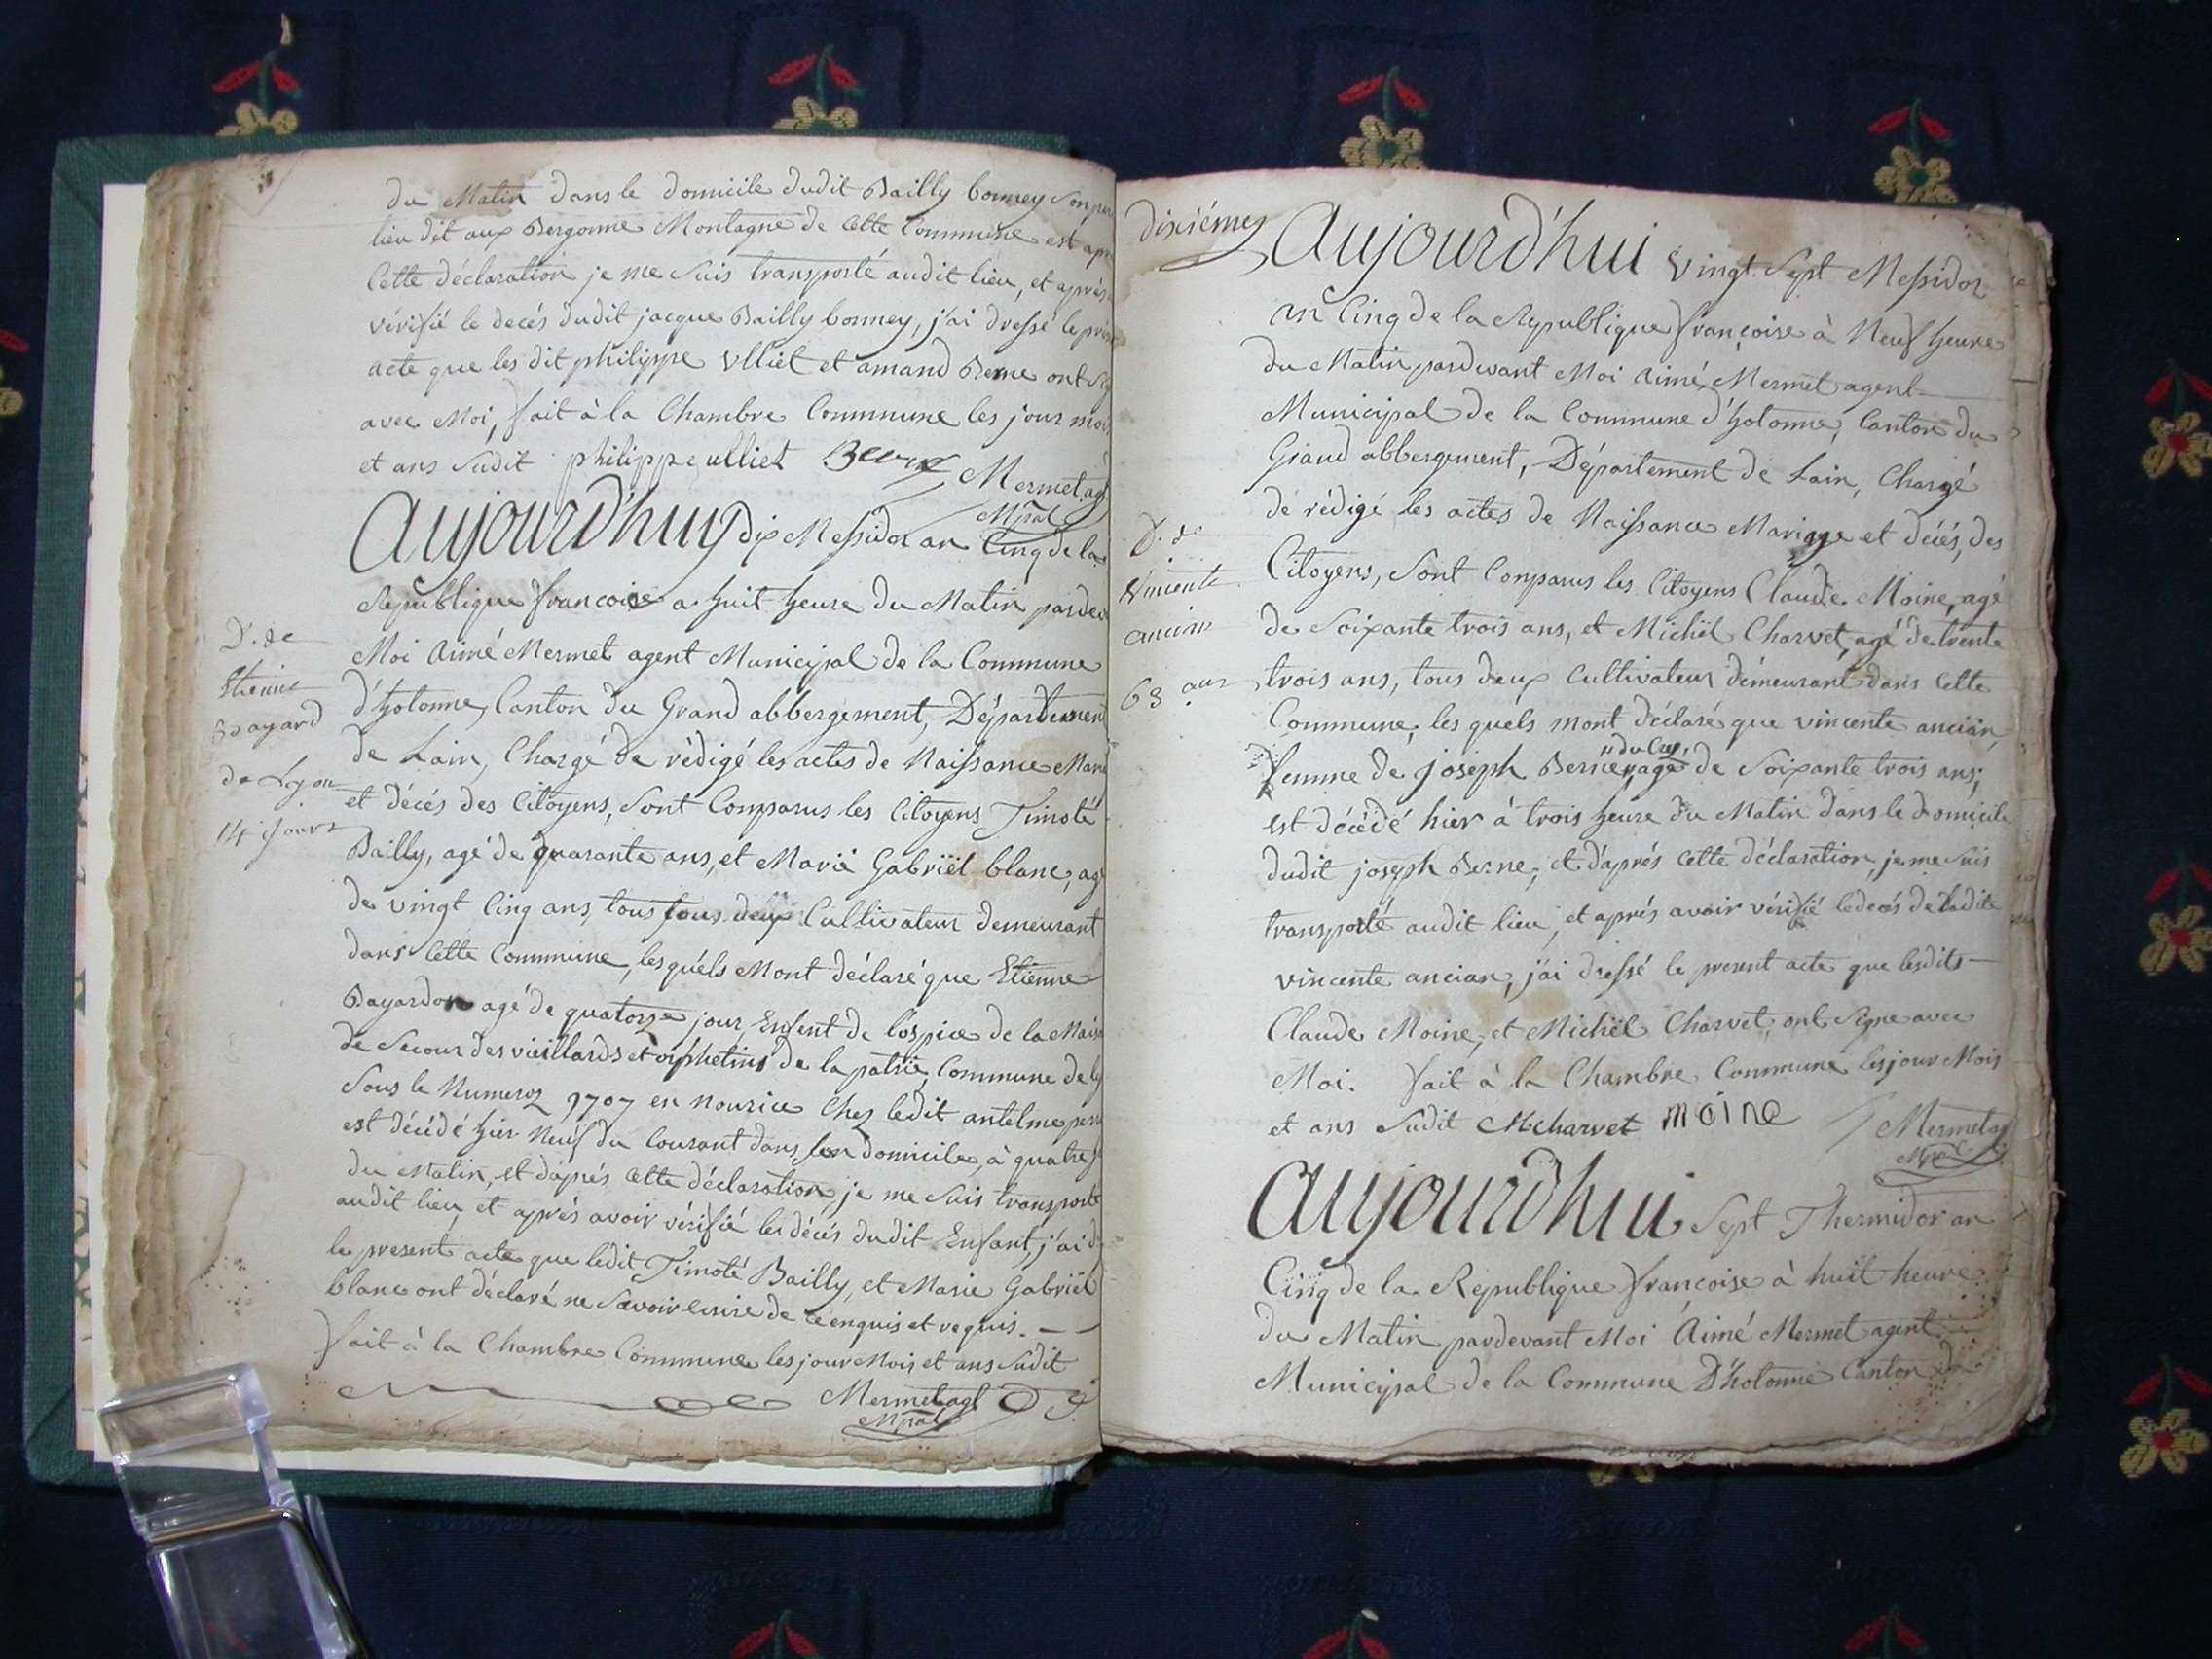 du Matin dans le domicile dudit Bailly bonney Son
lieu dit aux Bergonne Montagne de Cette Commune est
Cette déclaration je me suis transporté audit lieu, et après
vérifié le decés dudit jacque Bailly bonney, j'ai dressé le
acte que les dit philippe Ulliet et amand Berne ont
avec Moi, fait à la Chambre Commune les jour mois
et ans Sudit philippe ulliet Berne Mermet agt
Mpal
Aujourd'huy dix Messidor an Cinq de la
Republique francoise a huit heure du Matin parde
D. de
Moi Aimé Mermet agent Municipal de la Commune
Etienne
d'hotonne, Canton du Grand abbergement, Département
Bayard
de Lain, Chargé de rédigé les actes de Naissance Mari
de Lyon
et décés des Citoyens, Sont Comparus les Citoyens Timoté
14 jours
Bailly, agé de quarante ans, et Marië Gabriël blanc, agé
de vingt Cinq ans, tous deux Cultivateur demeurant
dans Cette Commune, lesquéls Mont déclaré que Etienne
Bayardon agé de quatorze jour, Enfent de lospice de la Mais
de Secour des vieillards et orphelins de la patrië, Commune de
Sous le Numeroz 9707 en nourice Chez ledit antelme
est décédé hier Neuf du Courant dans son domicile, à quatre
du Matin, et dáprés Cette déclaration, je me suis transporté
audit lieu, et aprés avoir vérifié le décés dudit Enfant, j'ai d
le present acte que ledit Timoté Bailly, et Marie Gabriël
blanc ont déclaré ne Savoir écrire de enquis et requis.
fait à la Chambre Commune les jour Mois et ans Sudit
Mermet agt
Mpal
dixiéme
Aujourd'hui Vingt Sept Messidor
an Cinq de la Republique françoise à Neuf heure
du Matin pardevant Moi Aimé Mermet agent
Municipal de la Commune d'hotonne, Canton du
Grand abbergement, Département de Lain, Chargé
de rédigé les actes de Naissance Mariage et décés, des
D. de
Citoyens, Sont Comparus les Citoyens Claude Moine, agé
Vincente
ancian
de Soixante trois ans, et Michël Charvet, agé de trente
63 ans
trois ans, tous deux Cultivateur démeurant dans Cette
Commune, les quéls mont déclaré que vincente ancian,
femme de joseph Berne, agé de Soixante trois ans;
est décédé hier à trois heure du Matin dans le domicile
dudit joseph Berne; et d'aprés Cette déclaration, je me suis
transporté audit lieu, et aprés avoir vérifié le decés de ladite
vincente ancian, j'ai dressé le present acte que lesdits
Claude Moine, et Michël Charvet, ont Signe avec
Moi. fait à la Chambre Commune les jour Mois
et ans Sudit M charvet moine Mermet agt
Mpal
Aujourd'hui Sept Thermidor an
Cinq de la République francoise à huit heure
du Matin pardevant Moi Aimé Mermet agent
Municipal de la Commune D'hotonne Canton du